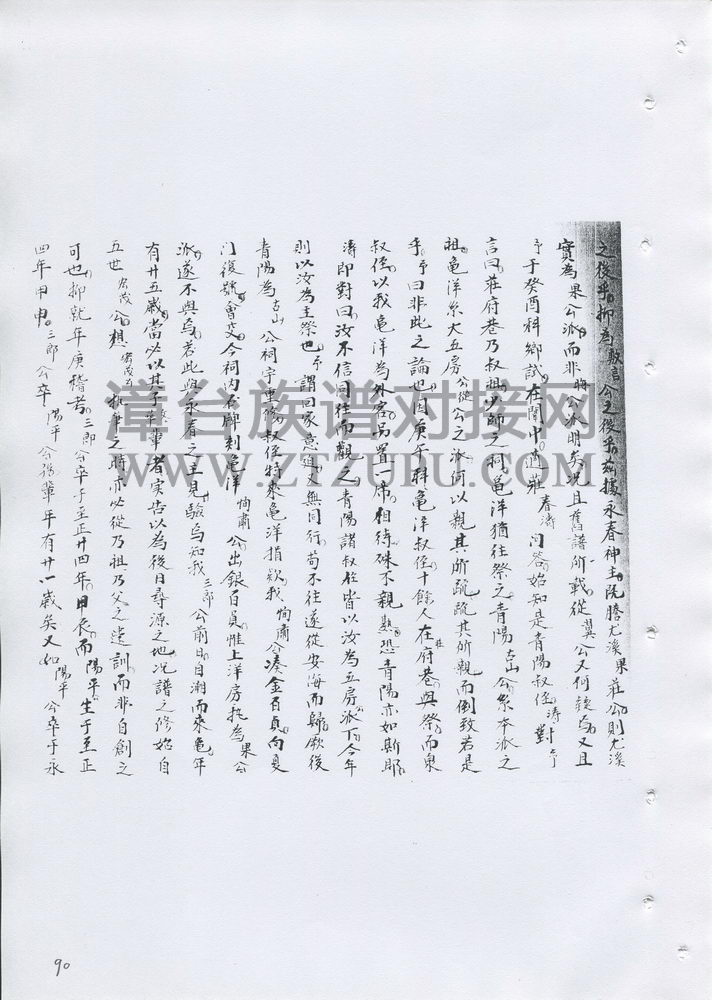 之後乎抑為 公之後乎茲據永春神主既謄尤溪果莊公則尤溪
實為果公派而非 公派明矣况且舊譜所載從翼公又何疑焉又且
予于癸酉科鄉試在閩中遇莊春濤問答始知是青陽叔侄濤對予
言曰莊府巷乃叔祖以師之祠龜洋猶往祭之青陽古山公系本派之
祖龜洋系大五房公從公之派何以親其所疏疏其所親而倒致若是
乎予曰非此之論也因庚午科龜洋叔侄十餘人在府巷與祭而泉
叔侄以我龜洋為外客另置一席相待殊不親熱恐青陽亦如斯耶
濤即對曰汝不信同往而觀之青陽諸叔侄皆以汝為五房派下今年
則以汝為主祭也予謂回家意迫無同行苟不往遂從安海而歸厥後
青陽為古山公祠宇重修叔侄特來龜洋捐欵我恂肅公凑金百員向夏
门復號會交今祠内石牌刻龜洋恂肅公出銀百員惟上洋房执為果公
派遂不與焉若此與永春之主見驗焉知我三郎公前日自湖而來龜年
有廿五歲當必以其子 輩者實告以為後日尋源之地况譜之修始自
五世宏茂公想宏茂公执筆之時亦必從乃祖乃父之遺訓而非自創之
可也抑就年庚稽考三郎公卒于至正廿四年甲辰而陽平生于至正
四年甲申三郎公卒陽平公 輩年有廿一歲矣又如陽平公卒于永
90
漳台族谱对接网
WWW.ZTZUPU.COM